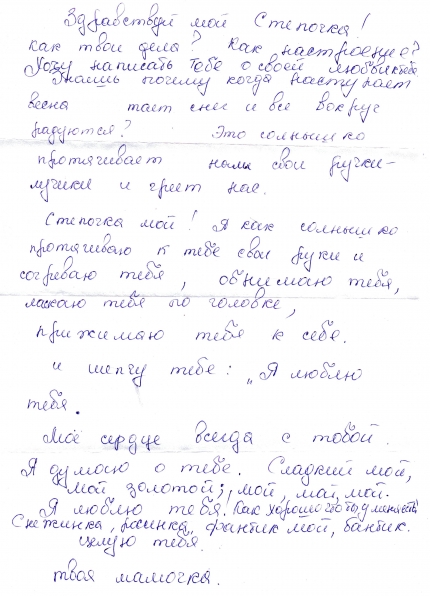 Здравствуй мой Степочка!
как твои дела? Как настроение?
Хочу написать тебе о своей любви к тебе
Знаешь почему когда наступает
весна тает снег и все вокруг
радуются? Это солнышко
протягивает нам свои ручки-
лучики и греет нас.
Степочка мой! Я как солнышко
протягиваю к тебе свои руки и
согреваю тебя, обнимаю тебя,
ласкаю тебя по головке,
прижимаю тебя к себе.
и шепчу тебе: „Я люблю
тебя.
Моё сердце всегда с тобой.
Я думаю о тебе. Сладкий мой,
мой золотой; мой, мой, мой.
Я люблю тебя. Как хорошо что ты у меня есть
Снежинка, росинка, фантик мой, бантик.
целую тебя.
твоя мамочка.